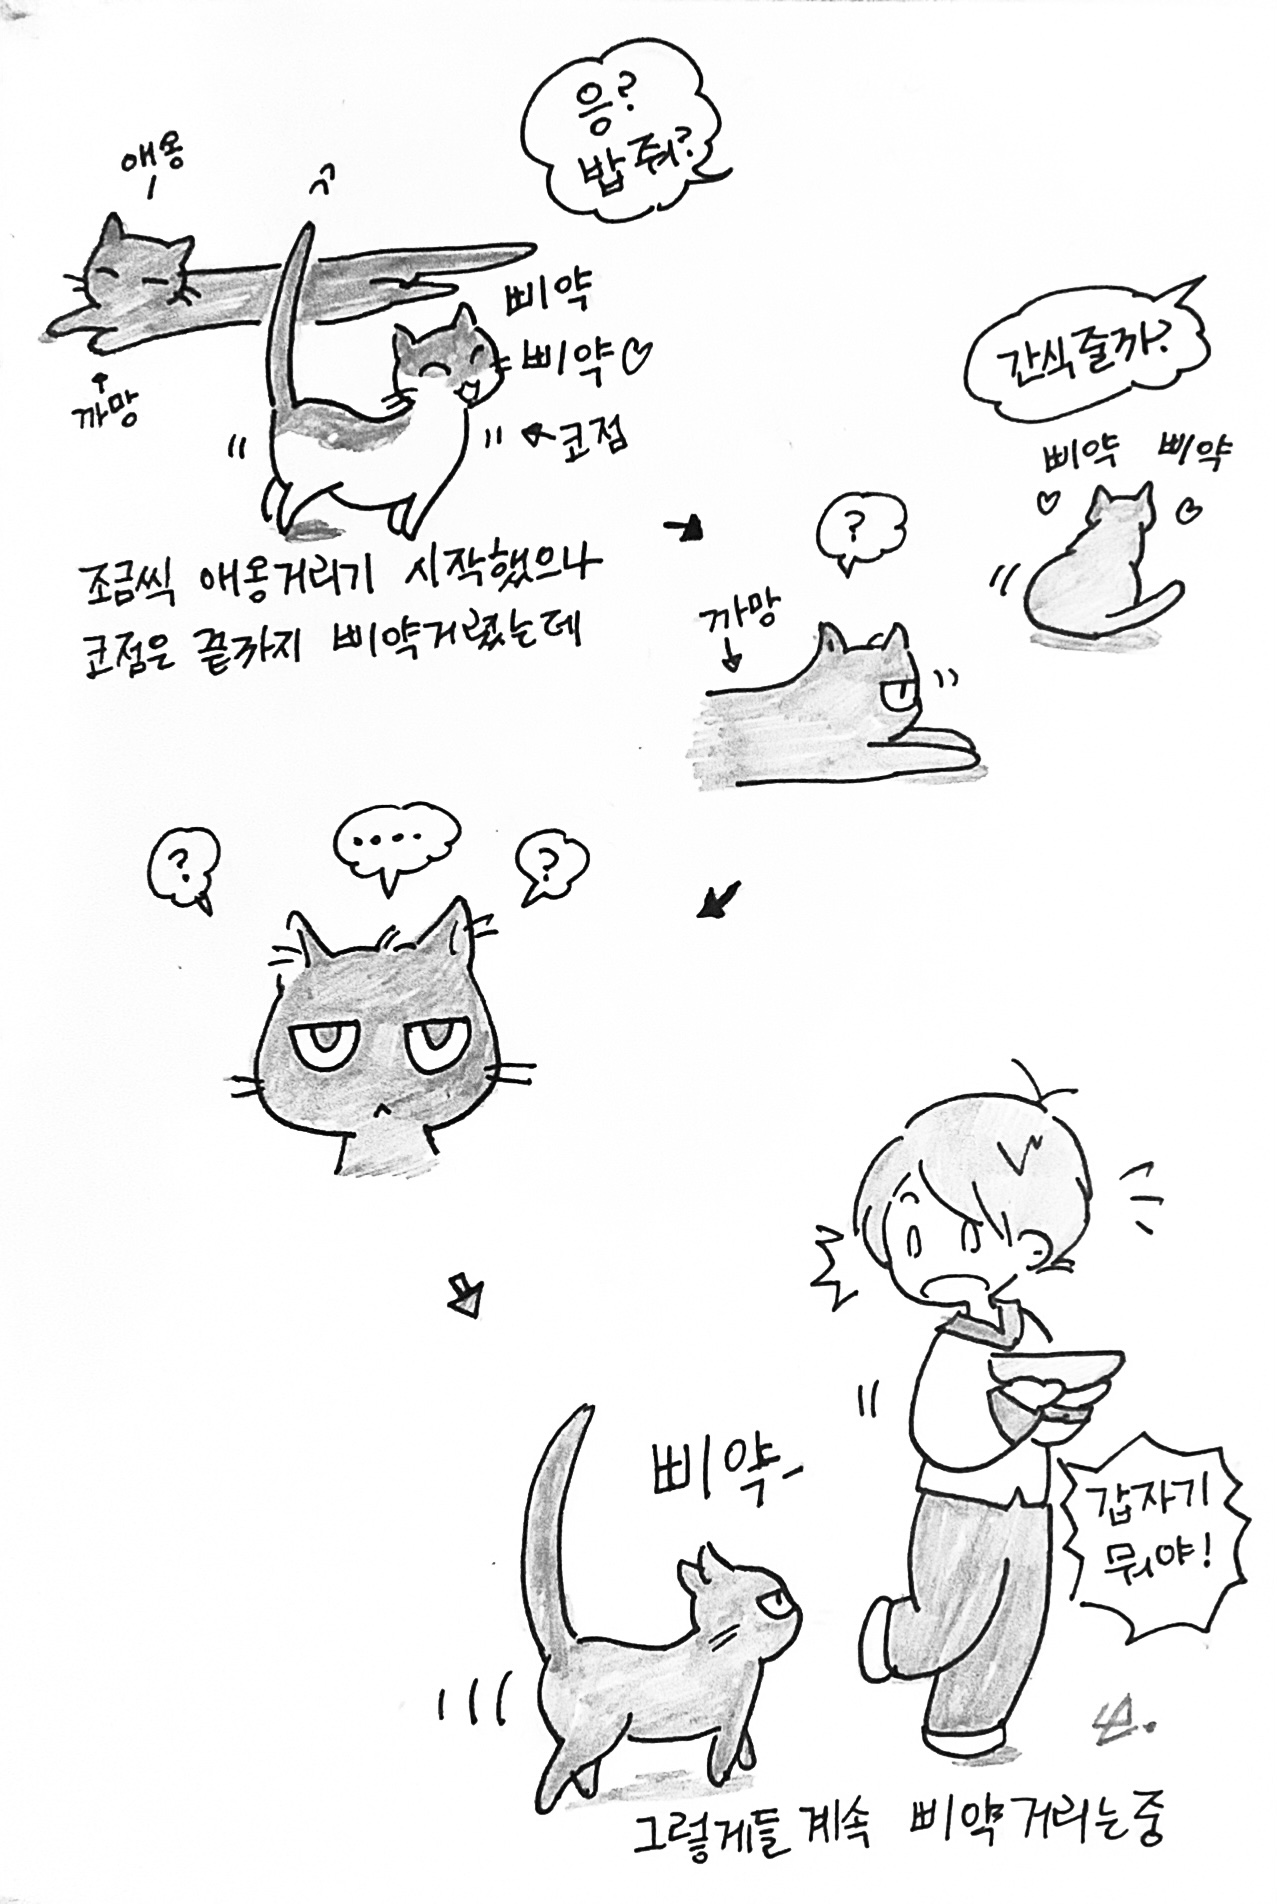 응?
밥 줘?
애옹
까망
삐약
삐약♡
코점
조금씩 애옹거리기 시작했으나
코점은 끝까지 삐약거렸는데
간식줄까?
삐약 삐약
?
까망
?
....
?
삐약-
갑자기
뭐야!
그렇게들 계속 삐약거리는 중